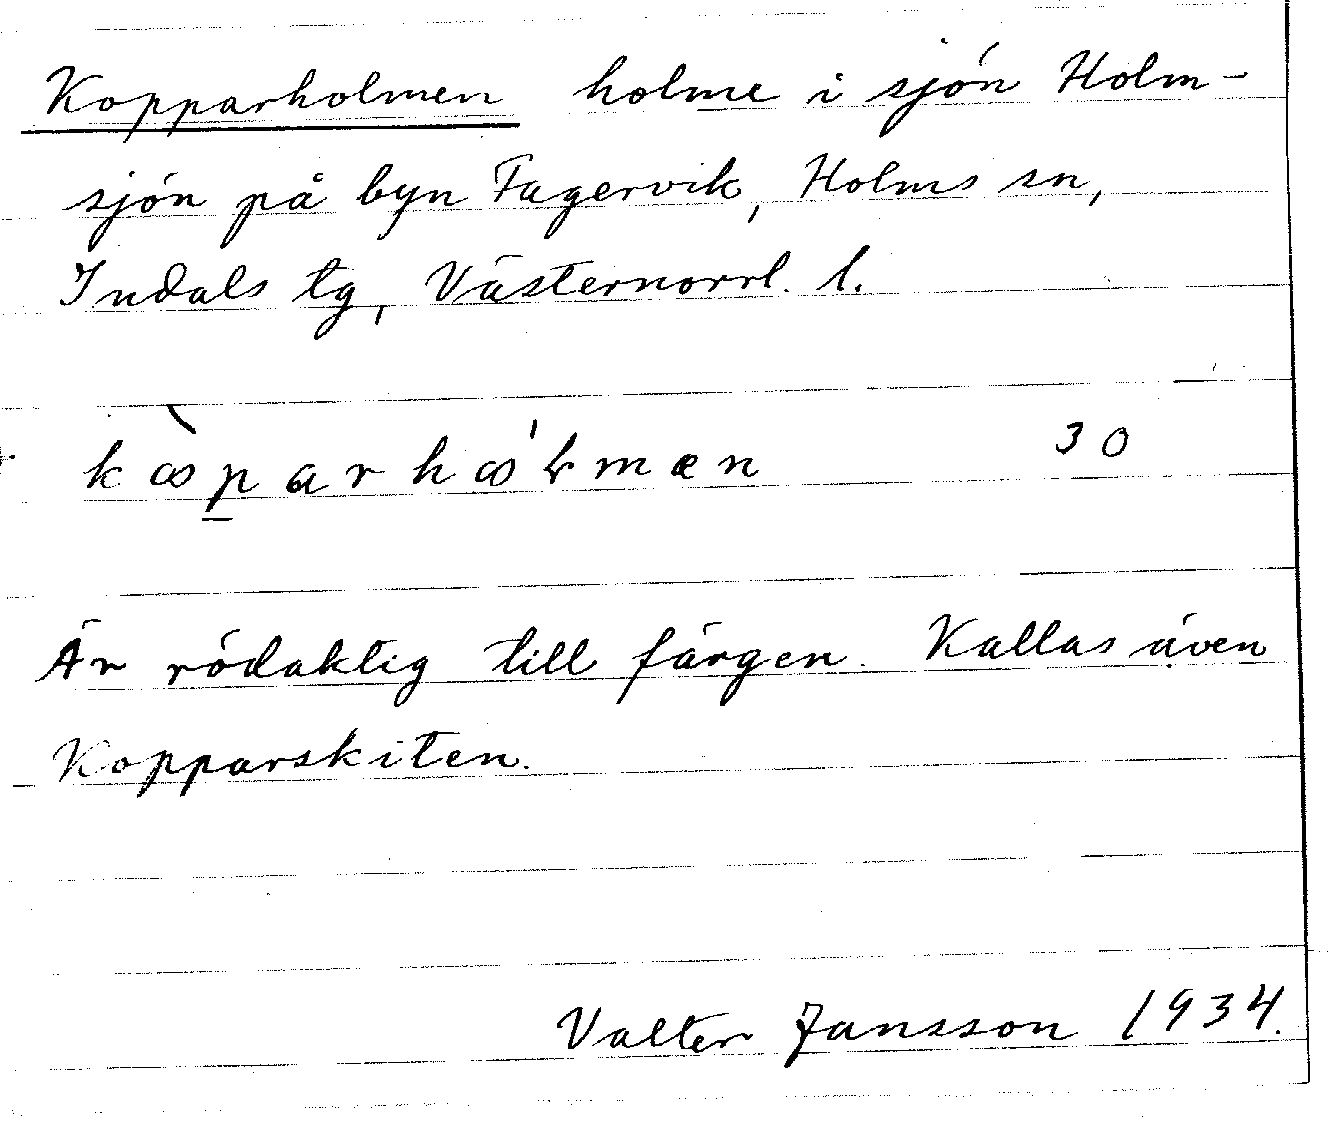 Kopparholmen holme i sjön Holm-
sjön på byn Fagervik, Holms sn,
Indals tg, Västernorrl. l.
30
Är rödaktig till färgen. Kallas även
Kopparskiten.
Valter Jansson 1934.